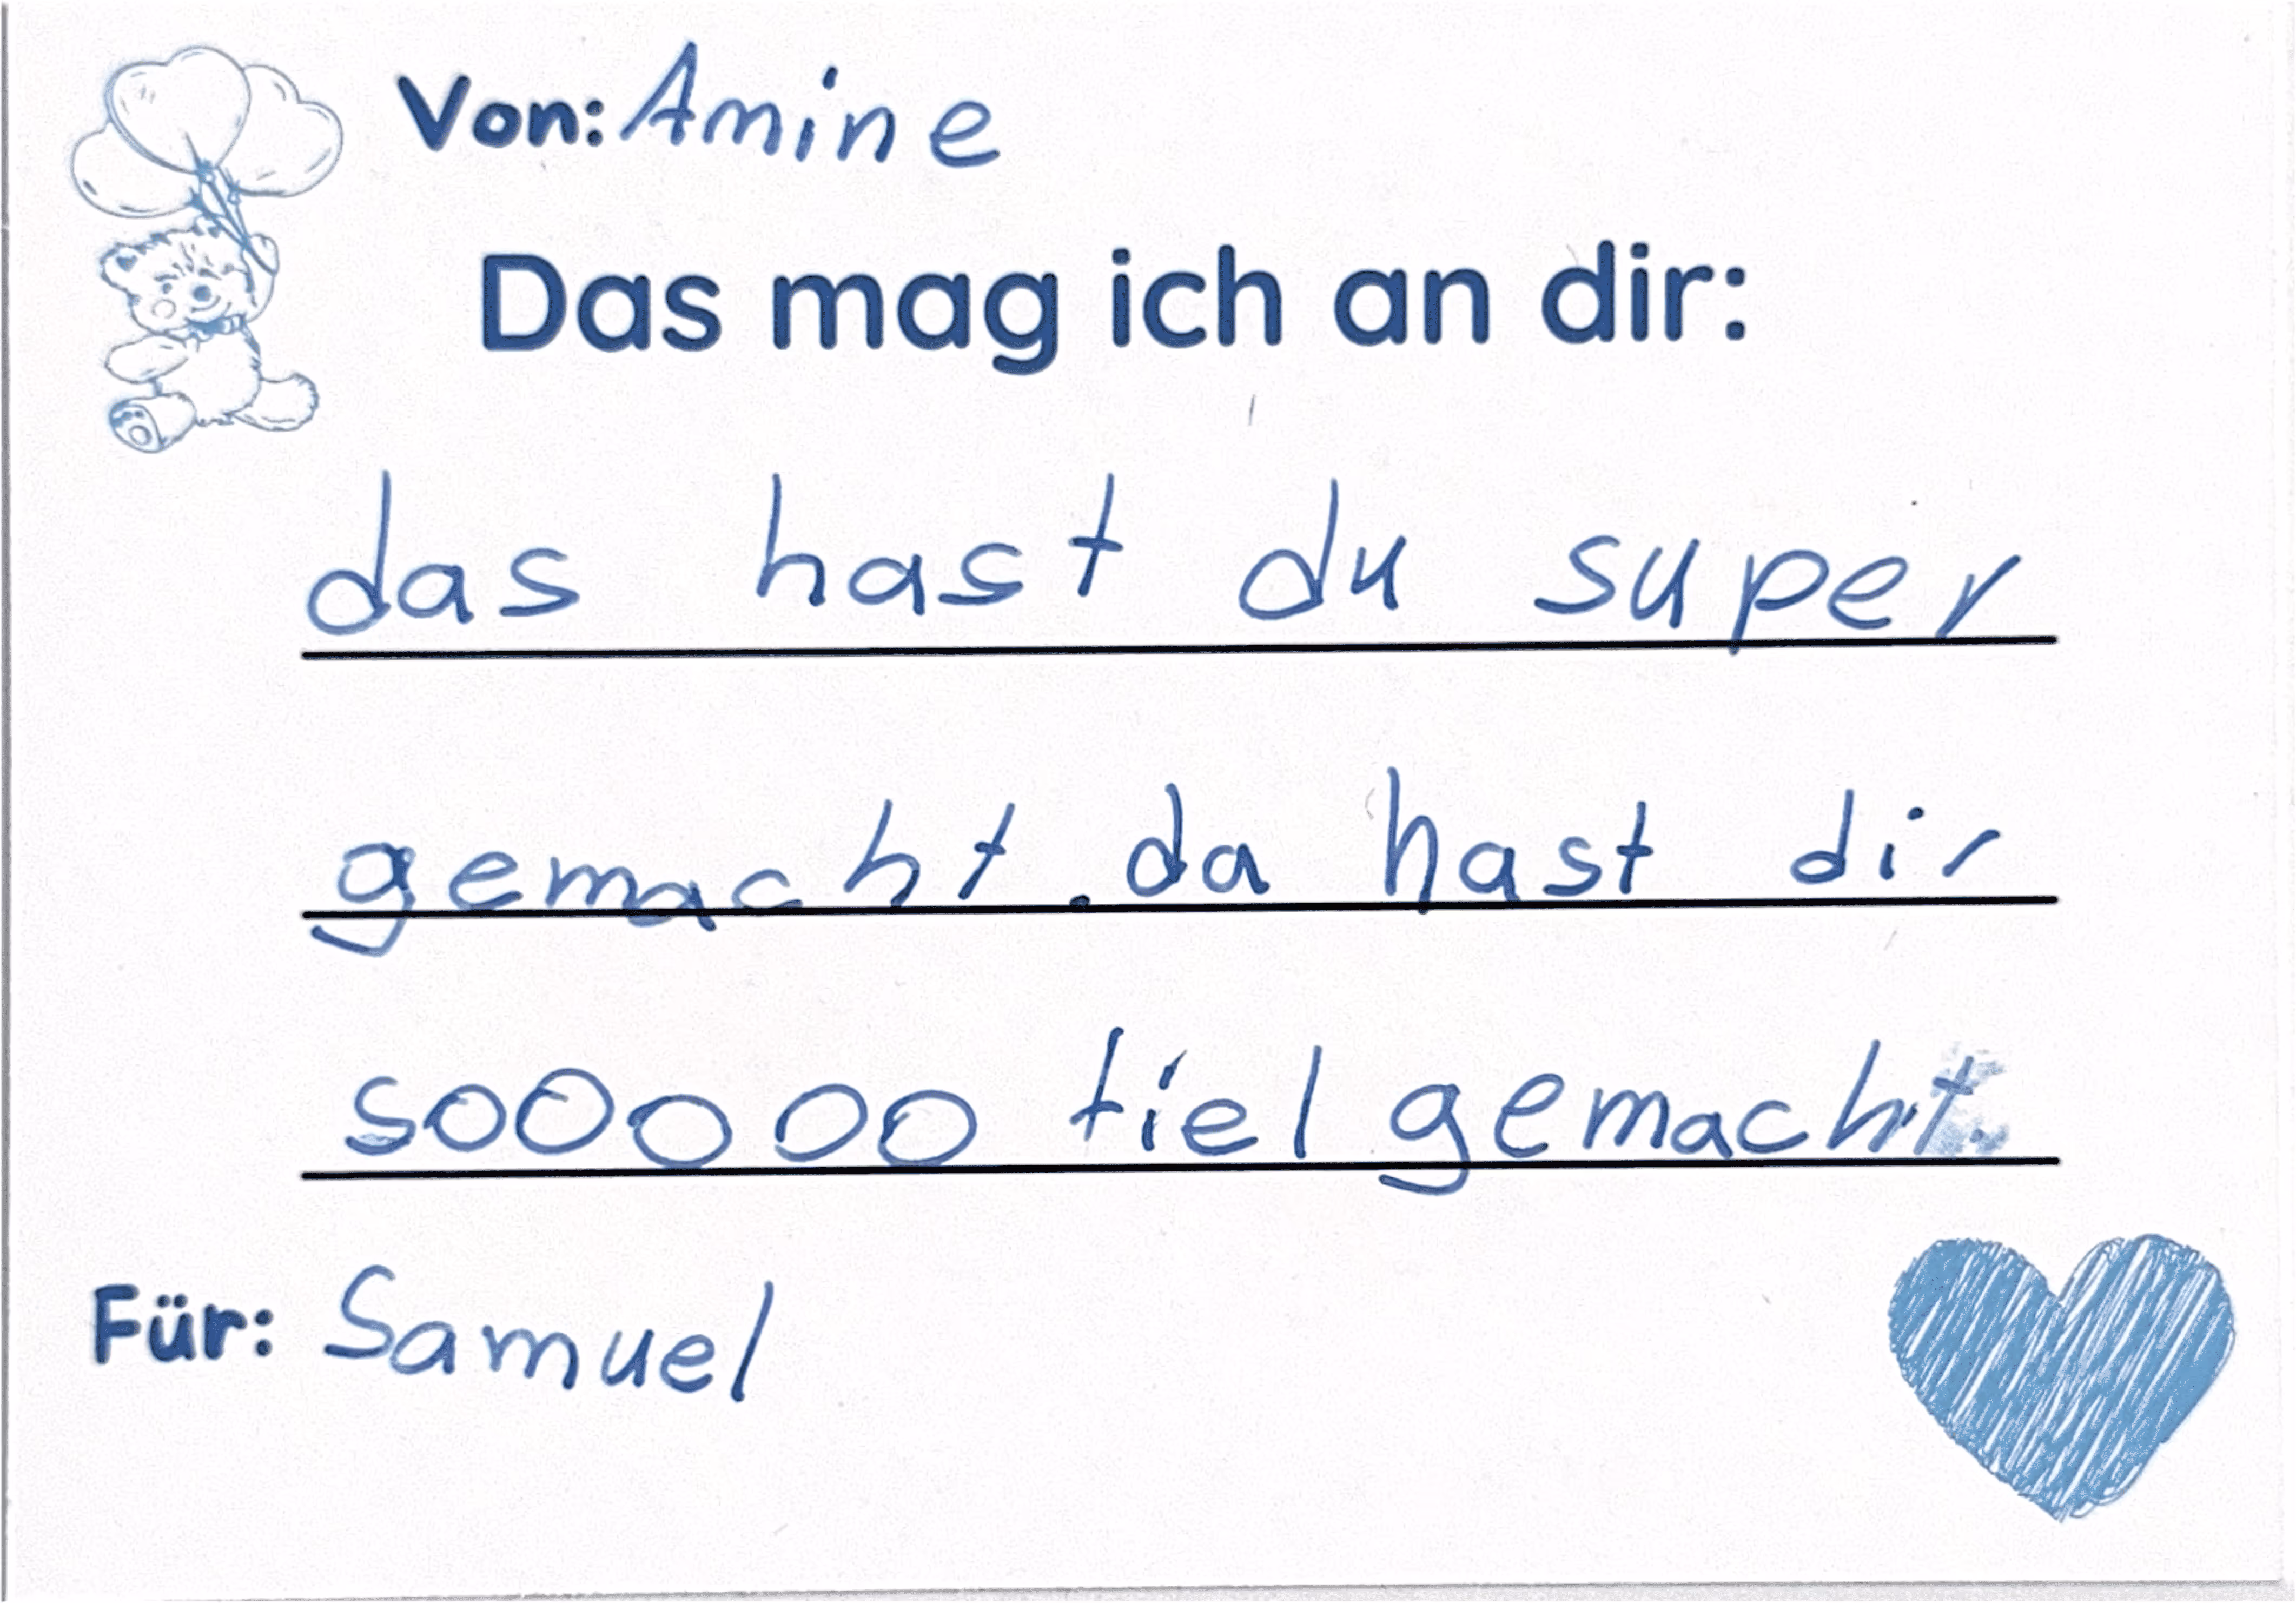 Von: Amine
Das mag ich an dir:
das hast du super
gemacht. da hast dir
sooooo fiel gemacht.
Für: Samuel